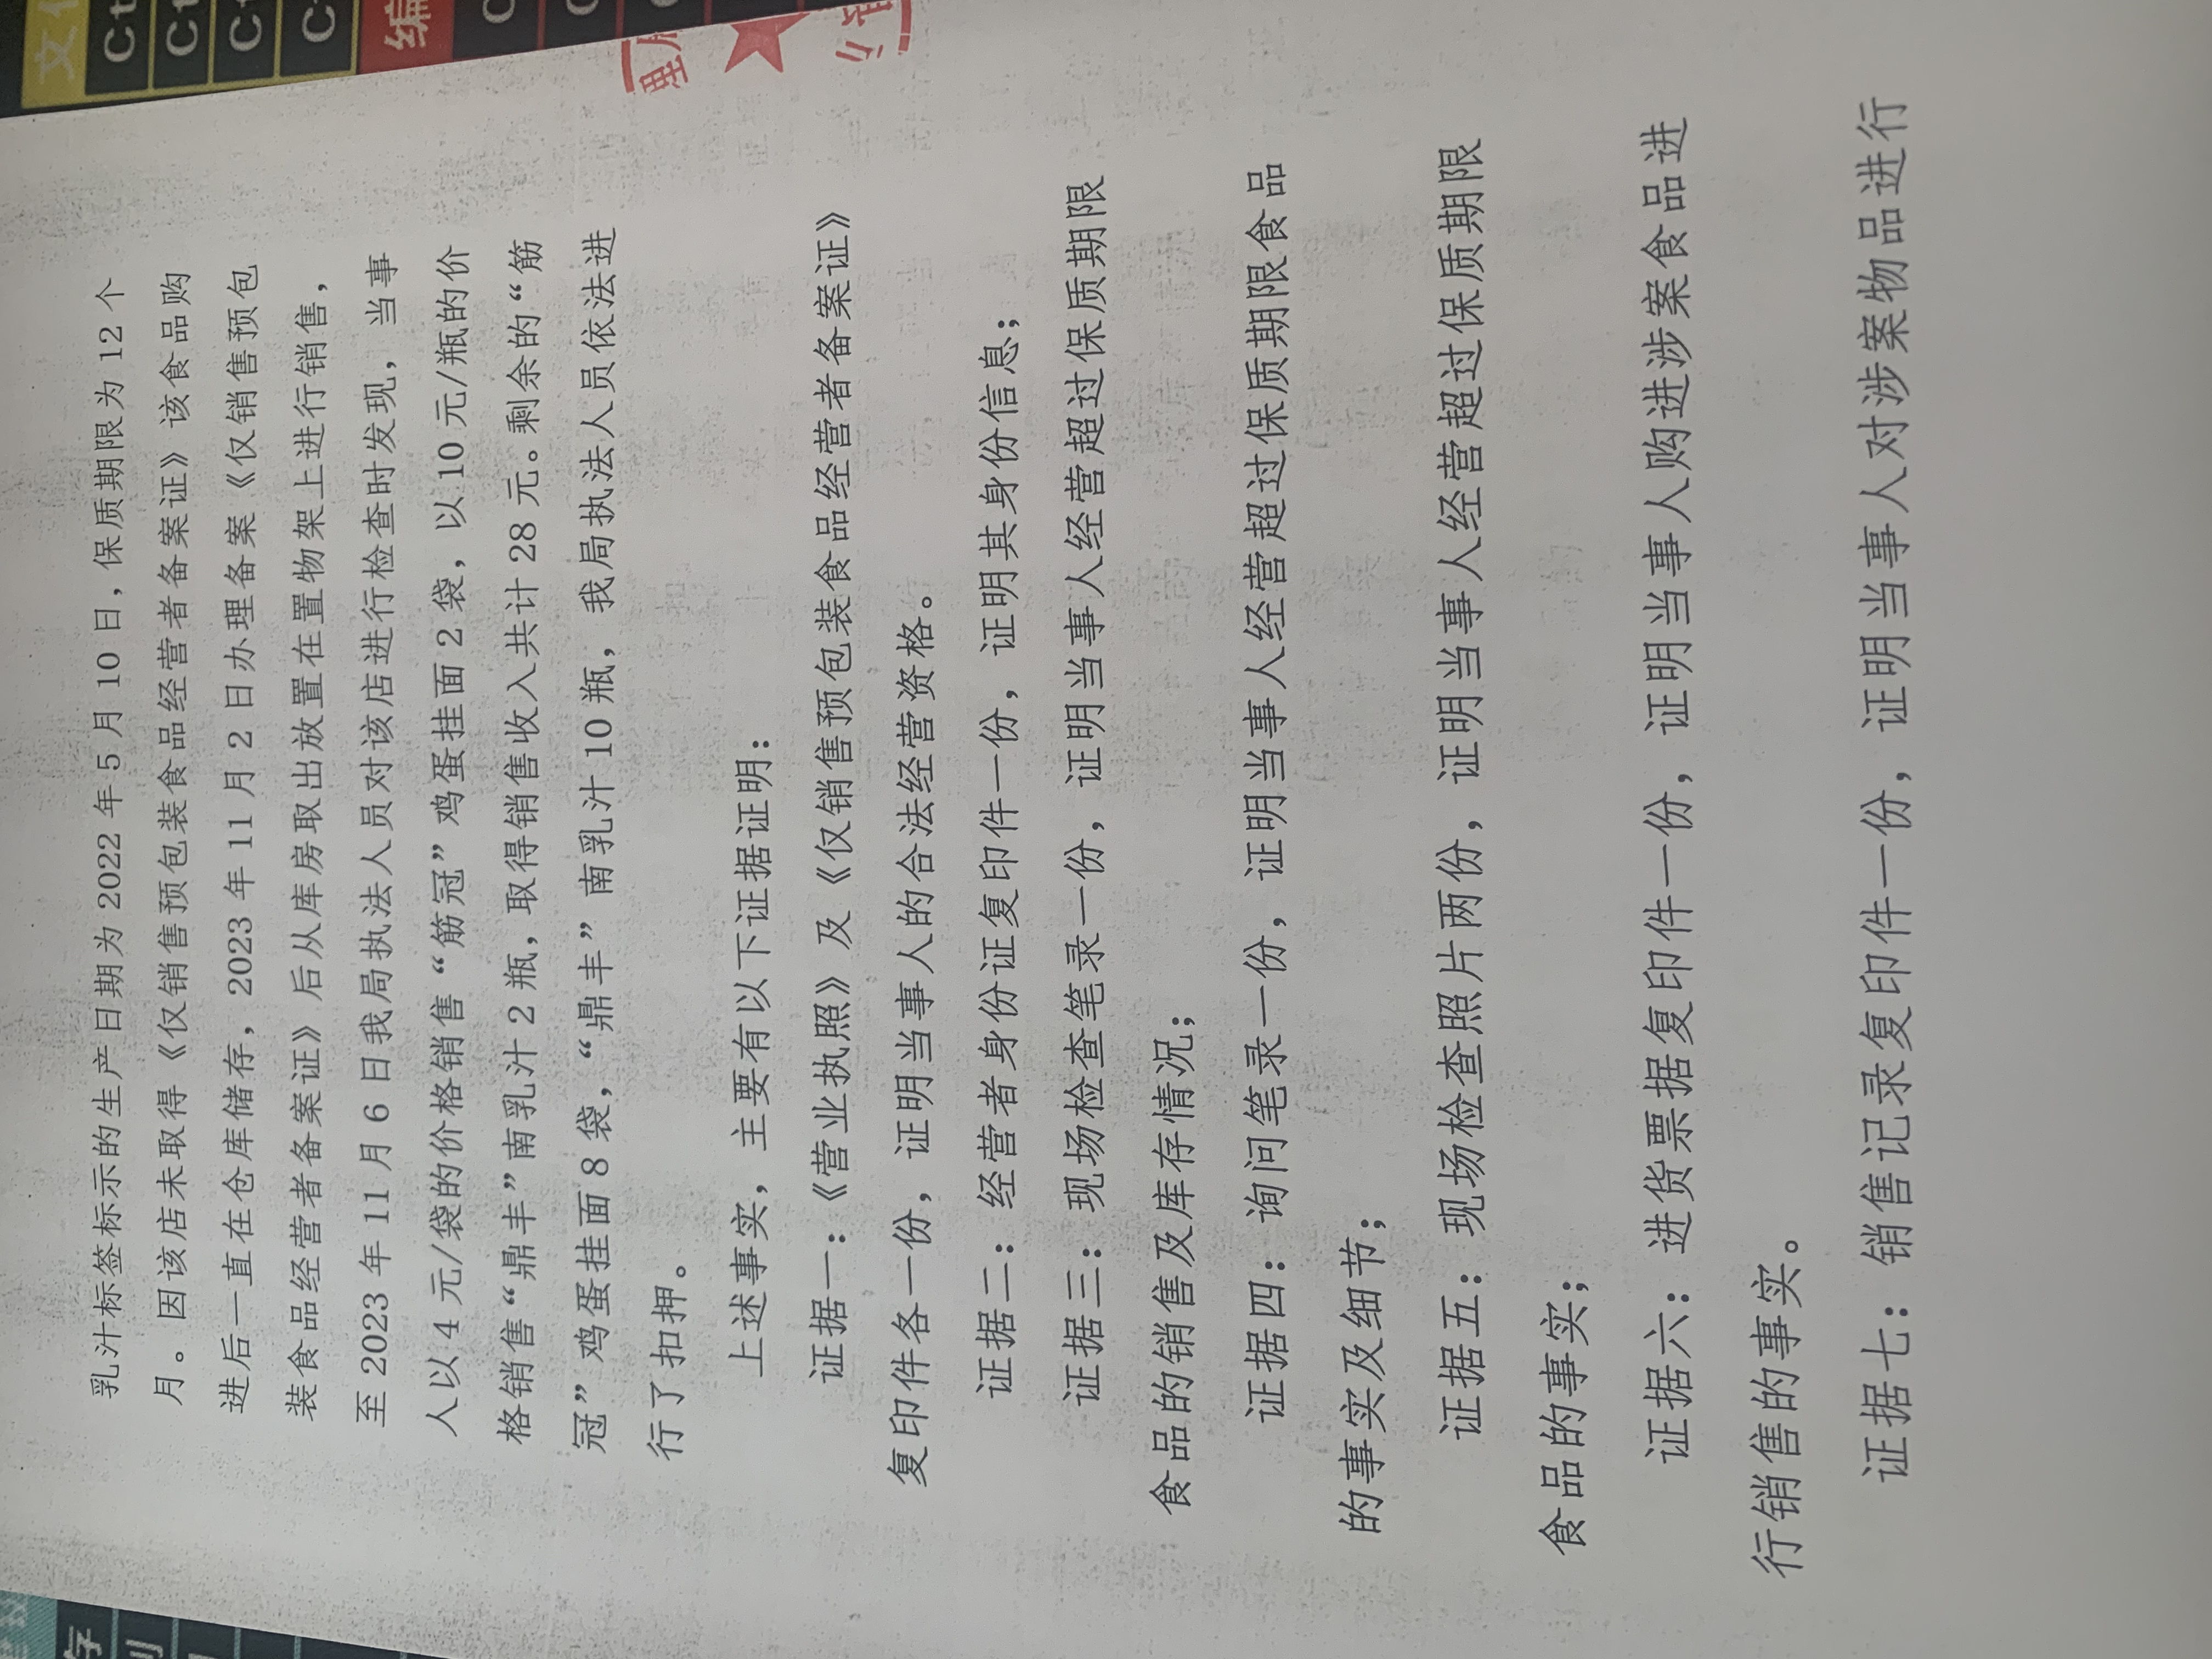 乳汁标签标示的生产日期为 2022 年 5 月 10 日，保质期限为 12 个
月。因该店未取得《仅销售预包装食品经营者备案证》该食品购
进后一直在仓库储存，2023 年 11 月 2 日办理备案《仅销售预包
装食品经营者备案证》后从库房取出放置在置物架上进行销售，
至 2023 年 11 月 6 日我局执法人员对该店进行检查时发现，当事
人以 4 元/袋的价格销售“筋冠”鸡蛋挂面 2 袋，以 10 元/瓶的价
格销售“鼎丰”南乳汁 2 瓶，取得销售收入共计 28 元。剩余的“筋
冠”鸡蛋挂面 8 袋，“鼎丰”南乳汁 10 瓶，我局执法人员依法进
行了扣押。
上述事实，主要有以下证据证明：
证据一：《营业执照》及《仅销售预包装食品经营者备案证》
复印件各一份，证明当事人的合法经营资格。
证据二：经营者身份证复印件一份，证明其身份信息；
证据三：现场检查笔录一份，证明当事人经营超过保质期限
食品的销售及库存情况；
证据四：询问笔录一份，证明当事人经营超过保质期限食品
的事实及细节；
证据五：现场检查照片两份，证明当事人经营超过保质期限
食品的事实；
证据六：进货票据复印件一份，证明当事人购进涉案食品进
行销售的事实。
证据七：销售记录复印件一份，证明当事人对涉案物品进行
理
编
存